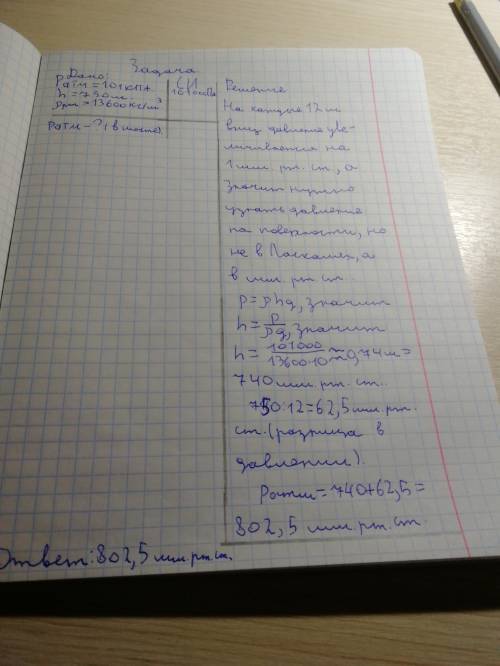 Задача
Дано:
Pатм = 101 кПа
h = 750 м
ρрт = 13600 кг/м³
Pатм - ? (в шахте)
СИ
101000Па
Решение
На каждые 12 м
вниз давление уве-
личивается на
1 мм. рт. ст., а
значит нужно
узнать давление
на поверхности, но
не в Паскалях, а
в мм. рт. ст.
P = ρhg, значит
h = P/ρg, значит
h = 101000/13600·10 ≈ 0,74 м =
740 мм. рт. ст.
750:12=62,5 мм. рт.
ст. (разница в
давлении).
Pатм = 740+62,5 =
802,5 мм. рт. ст.
Ответ: 802,5 мм. рт. ст.